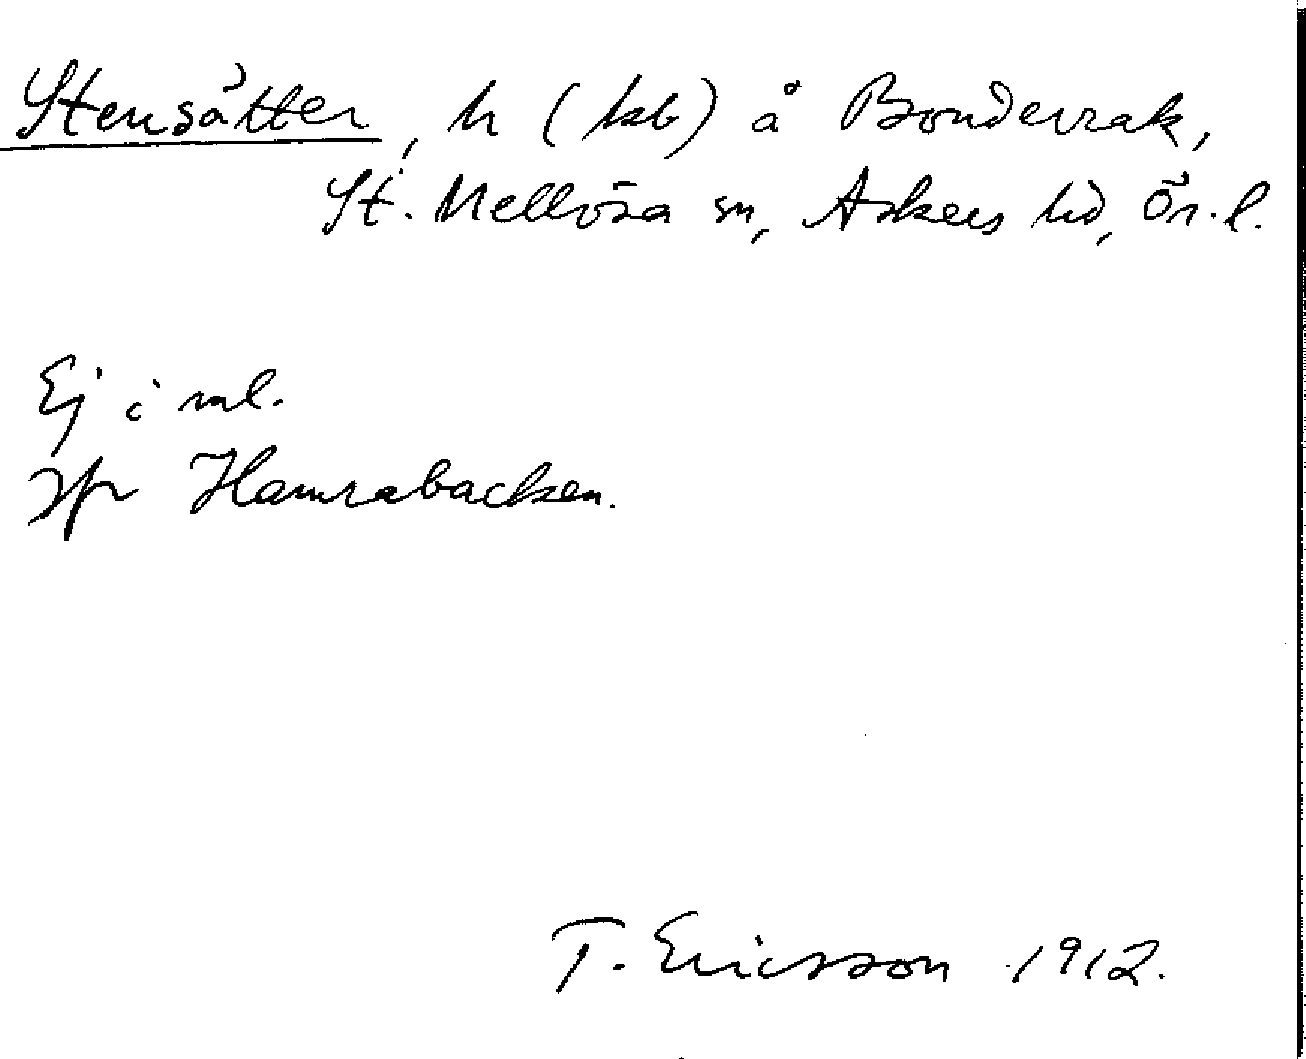 Stensätter, h (kb) å Bondevrak,
St. Mellösa sn, Askers hd, Ör. l.
Ej i ml.
Hamrabacken.
T. Ericsson 1912.